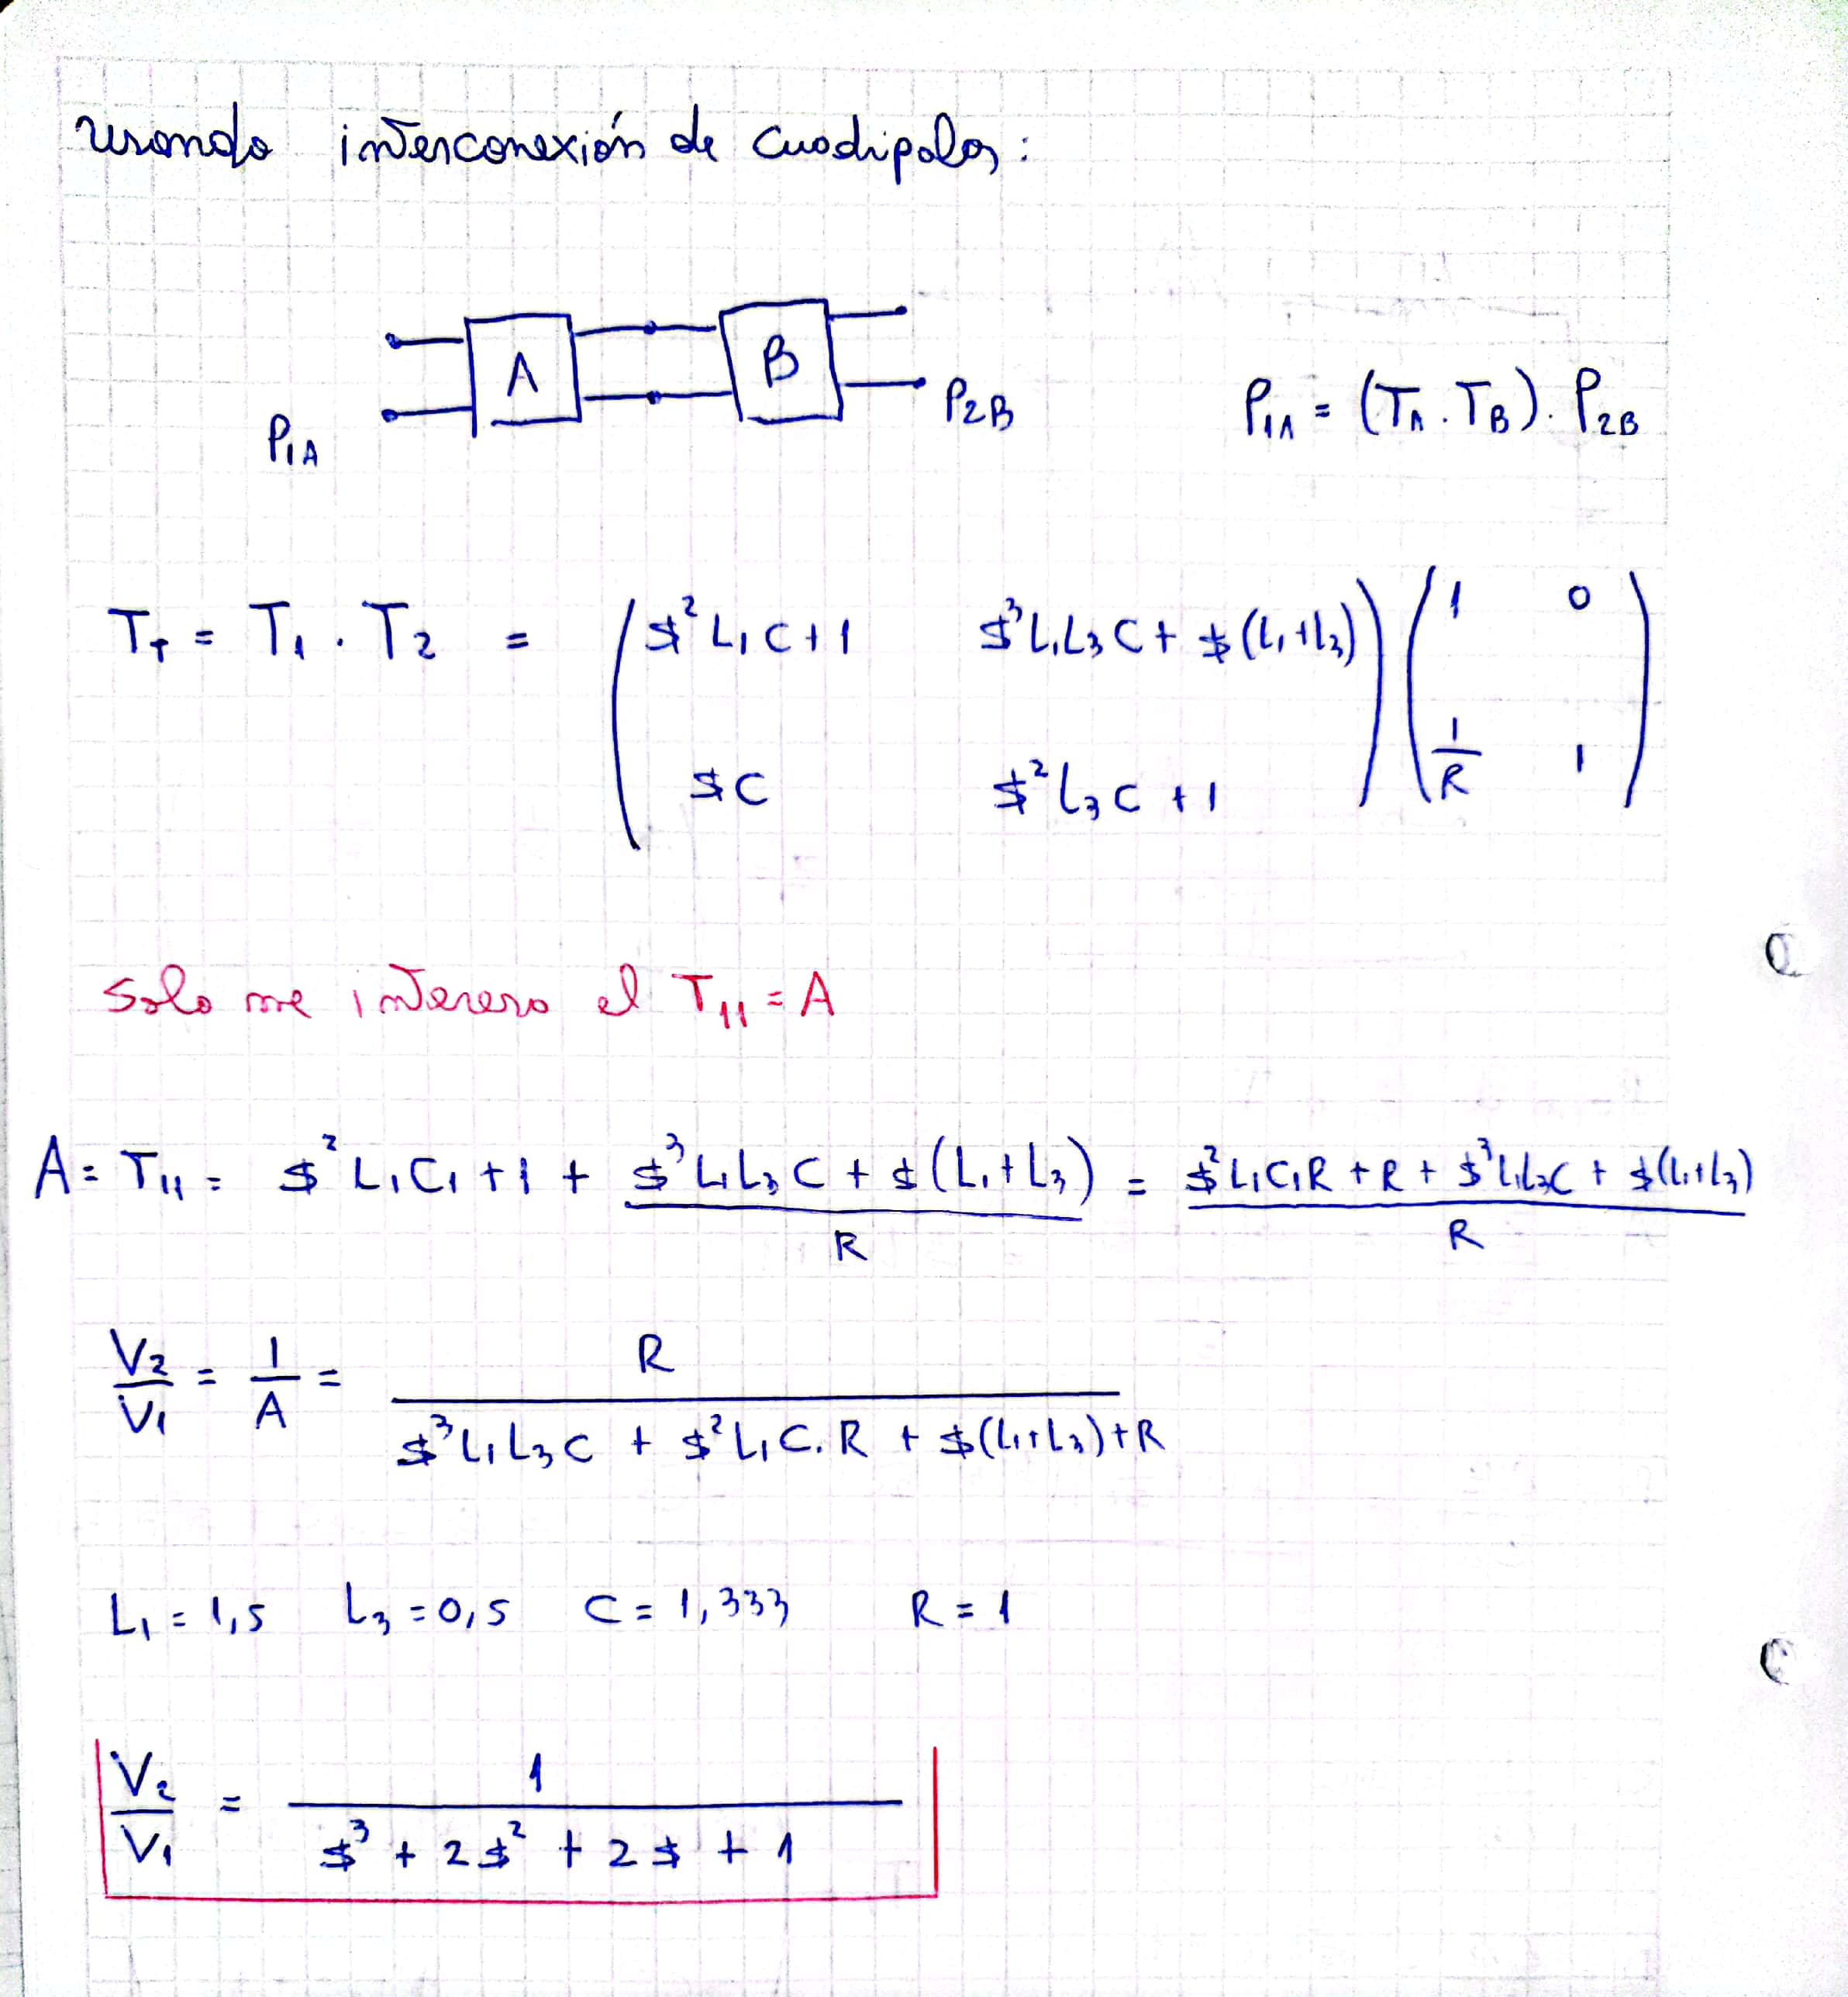 usando interconexión de cuadripolos:
A B
P1A P2B P1A = (TA . TB) . P2B
TT = T1 . T2 = ( $²L1C+1 $³L1L3C + $(L1+L3) ) ( 1 0 )
$C $²L3C + 1 1/R 1
Solo me interesa el T11 = A
A = T11 = $²L1C1 + 1 + ($³L1L3C + $(L1+L3))/R = ($²L1C1R + R + $³L1L3C + $(L1+L3))/R
V2/V1 = 1/A = R/($³L1L3C + $²L1C.R + $(L1+L3)+R)
L1 = 1,5 L3 = 0,5 C = 1,333 R = 1
V2/V1 = 1/($³ + 2$² + 2$ + 1)